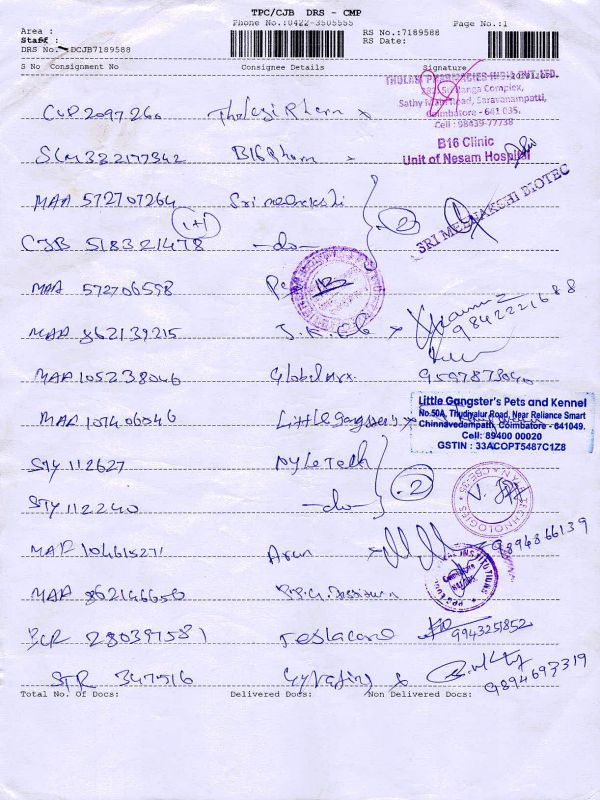 TPC/CJB DRS - CMP
Phone No.:0422-3505555 Page No.:1
Area :
Staff :
DRS No.: DCJB7189588
RS No.:7189588
RS Date:
S No Consignment No Consignee Details Signature
THOLASI PHARMACIES INDIA PVT LTD.
Sathy Main Road, Saravanampatti,
Coimbatore - 641 035.
Cell : 98439-77738
CUP 2097260
B16 Clinic
Unit of Nesam Hospital
SLM 332177342 B16 Pharm
MAA 572707264 Sri meenakshi
SRI MEENAKSHI BIOTEC
(1+1) 2
CJB 518321478 -do-
MAA 572706598
MAA 862139215 J.K. 9842221688
MAA 105238046 Global 9597873040
MAA 107406046 Little gangster's
Little Gangster's Pets and Kennel
No.50A, Thudiyalur Road, Near Reliance Smart
Chinnavedampatti, Coimbatore - 641049.
Cell: 89400 00020
GSTIN : 33ACOPT5487C1Z8
STY 112627 Nyle Tech
2
STY 112240 -do-
TECHNOLOGIES
MAA 104615271 Arun 9894866139
INSTITUTIONS
MAA 862146656
BCR 280397581 9943251852
STR 347516 9894697319
Total No. Of Docs: Delivered Docs: Non Delivered Docs: